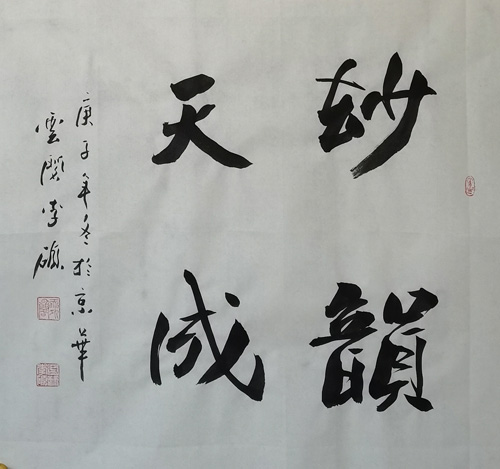 玅韻
天成
庚子年冬於京華
雲李